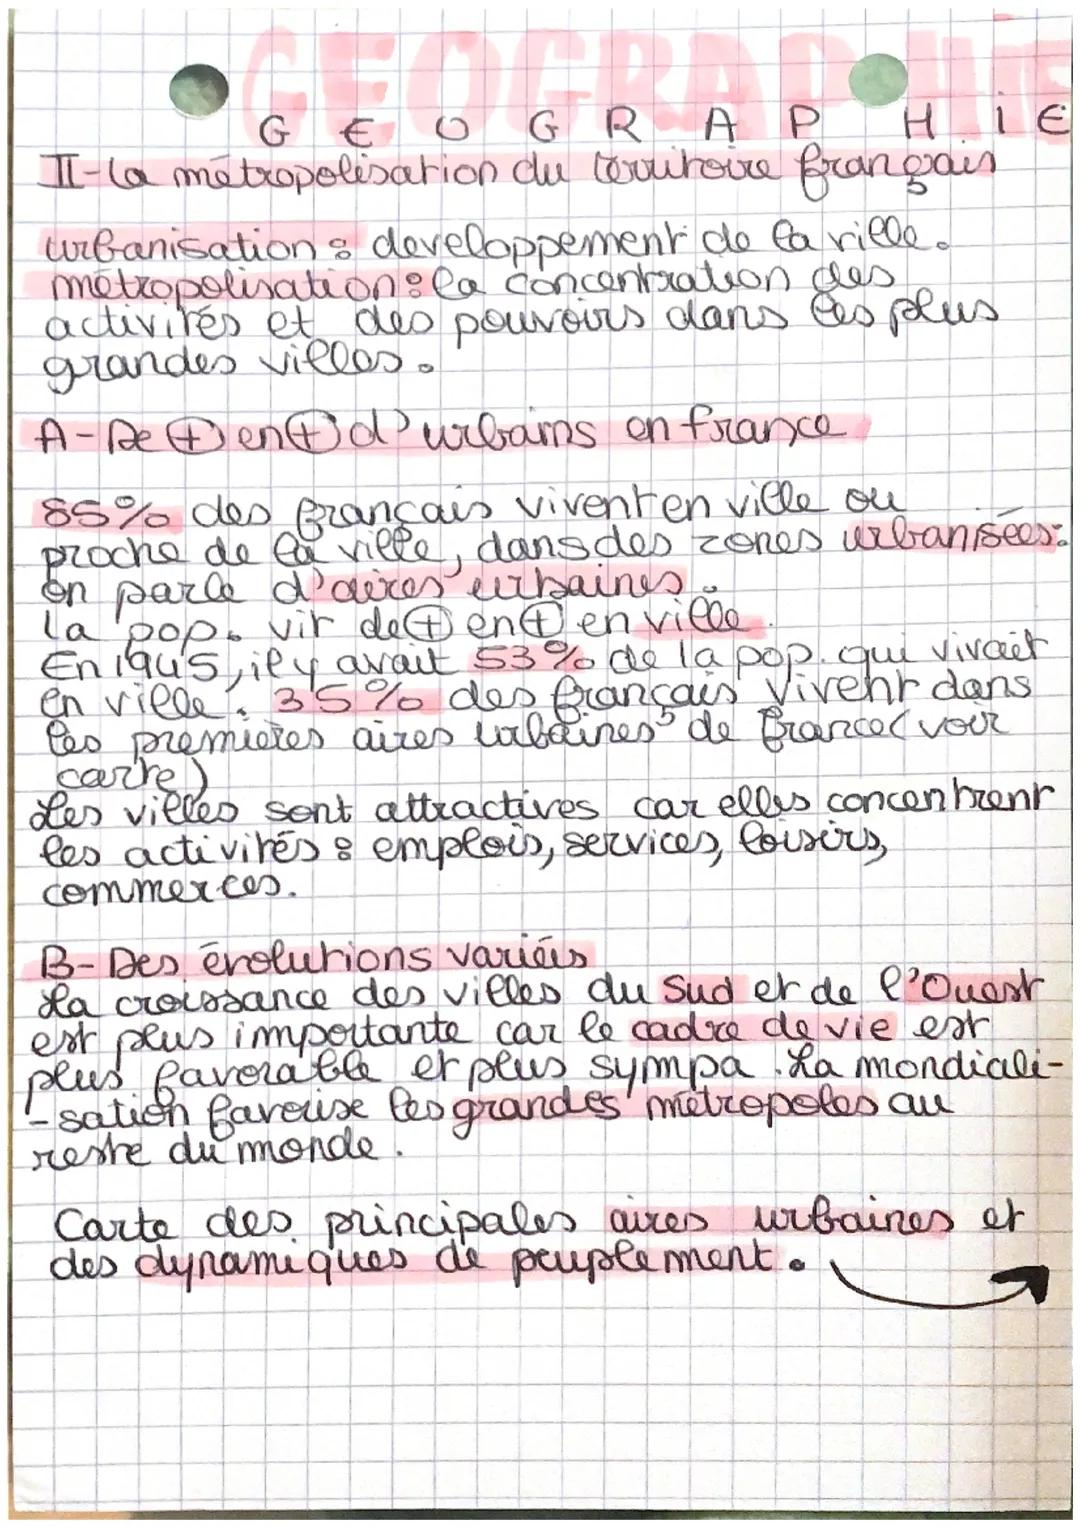 GEOGRAPHIE
G E O G R A P H i E
II-la métropolisation du territoire français
urbanisation : developpement de la ville.
métropolisation : la concentration des
activités et des pouvoirs dans les plus
grandes villes.
A-De ⊕ en ⊕ d'urbains en france
85% des français vivent en ville ou
proche de la ville, dans des zones urbanisées:
on parle d'aires urbaines.
la pop. vit de ⊕ en ⊕ en ville.
En 1945, il y avait 53% de la pop. qui vivait
en ville. 35% des français vivent dans
les premières aires urbaines de france (voir
carte)
Les villes sont attractives car elles concentrent
les activités : emplois, services, loisirs,
commerces.
B-Des évolutions variées
La croissance des villes du Sud et de l'Ouest
est plus importante car le cadre de vie est
plus favorable et plus sympa. La mondiali-
-sation favorise les grandes métropoles au
reste du monde.
Carte des principales aires urbaines et
des dynamiques de peuplement.